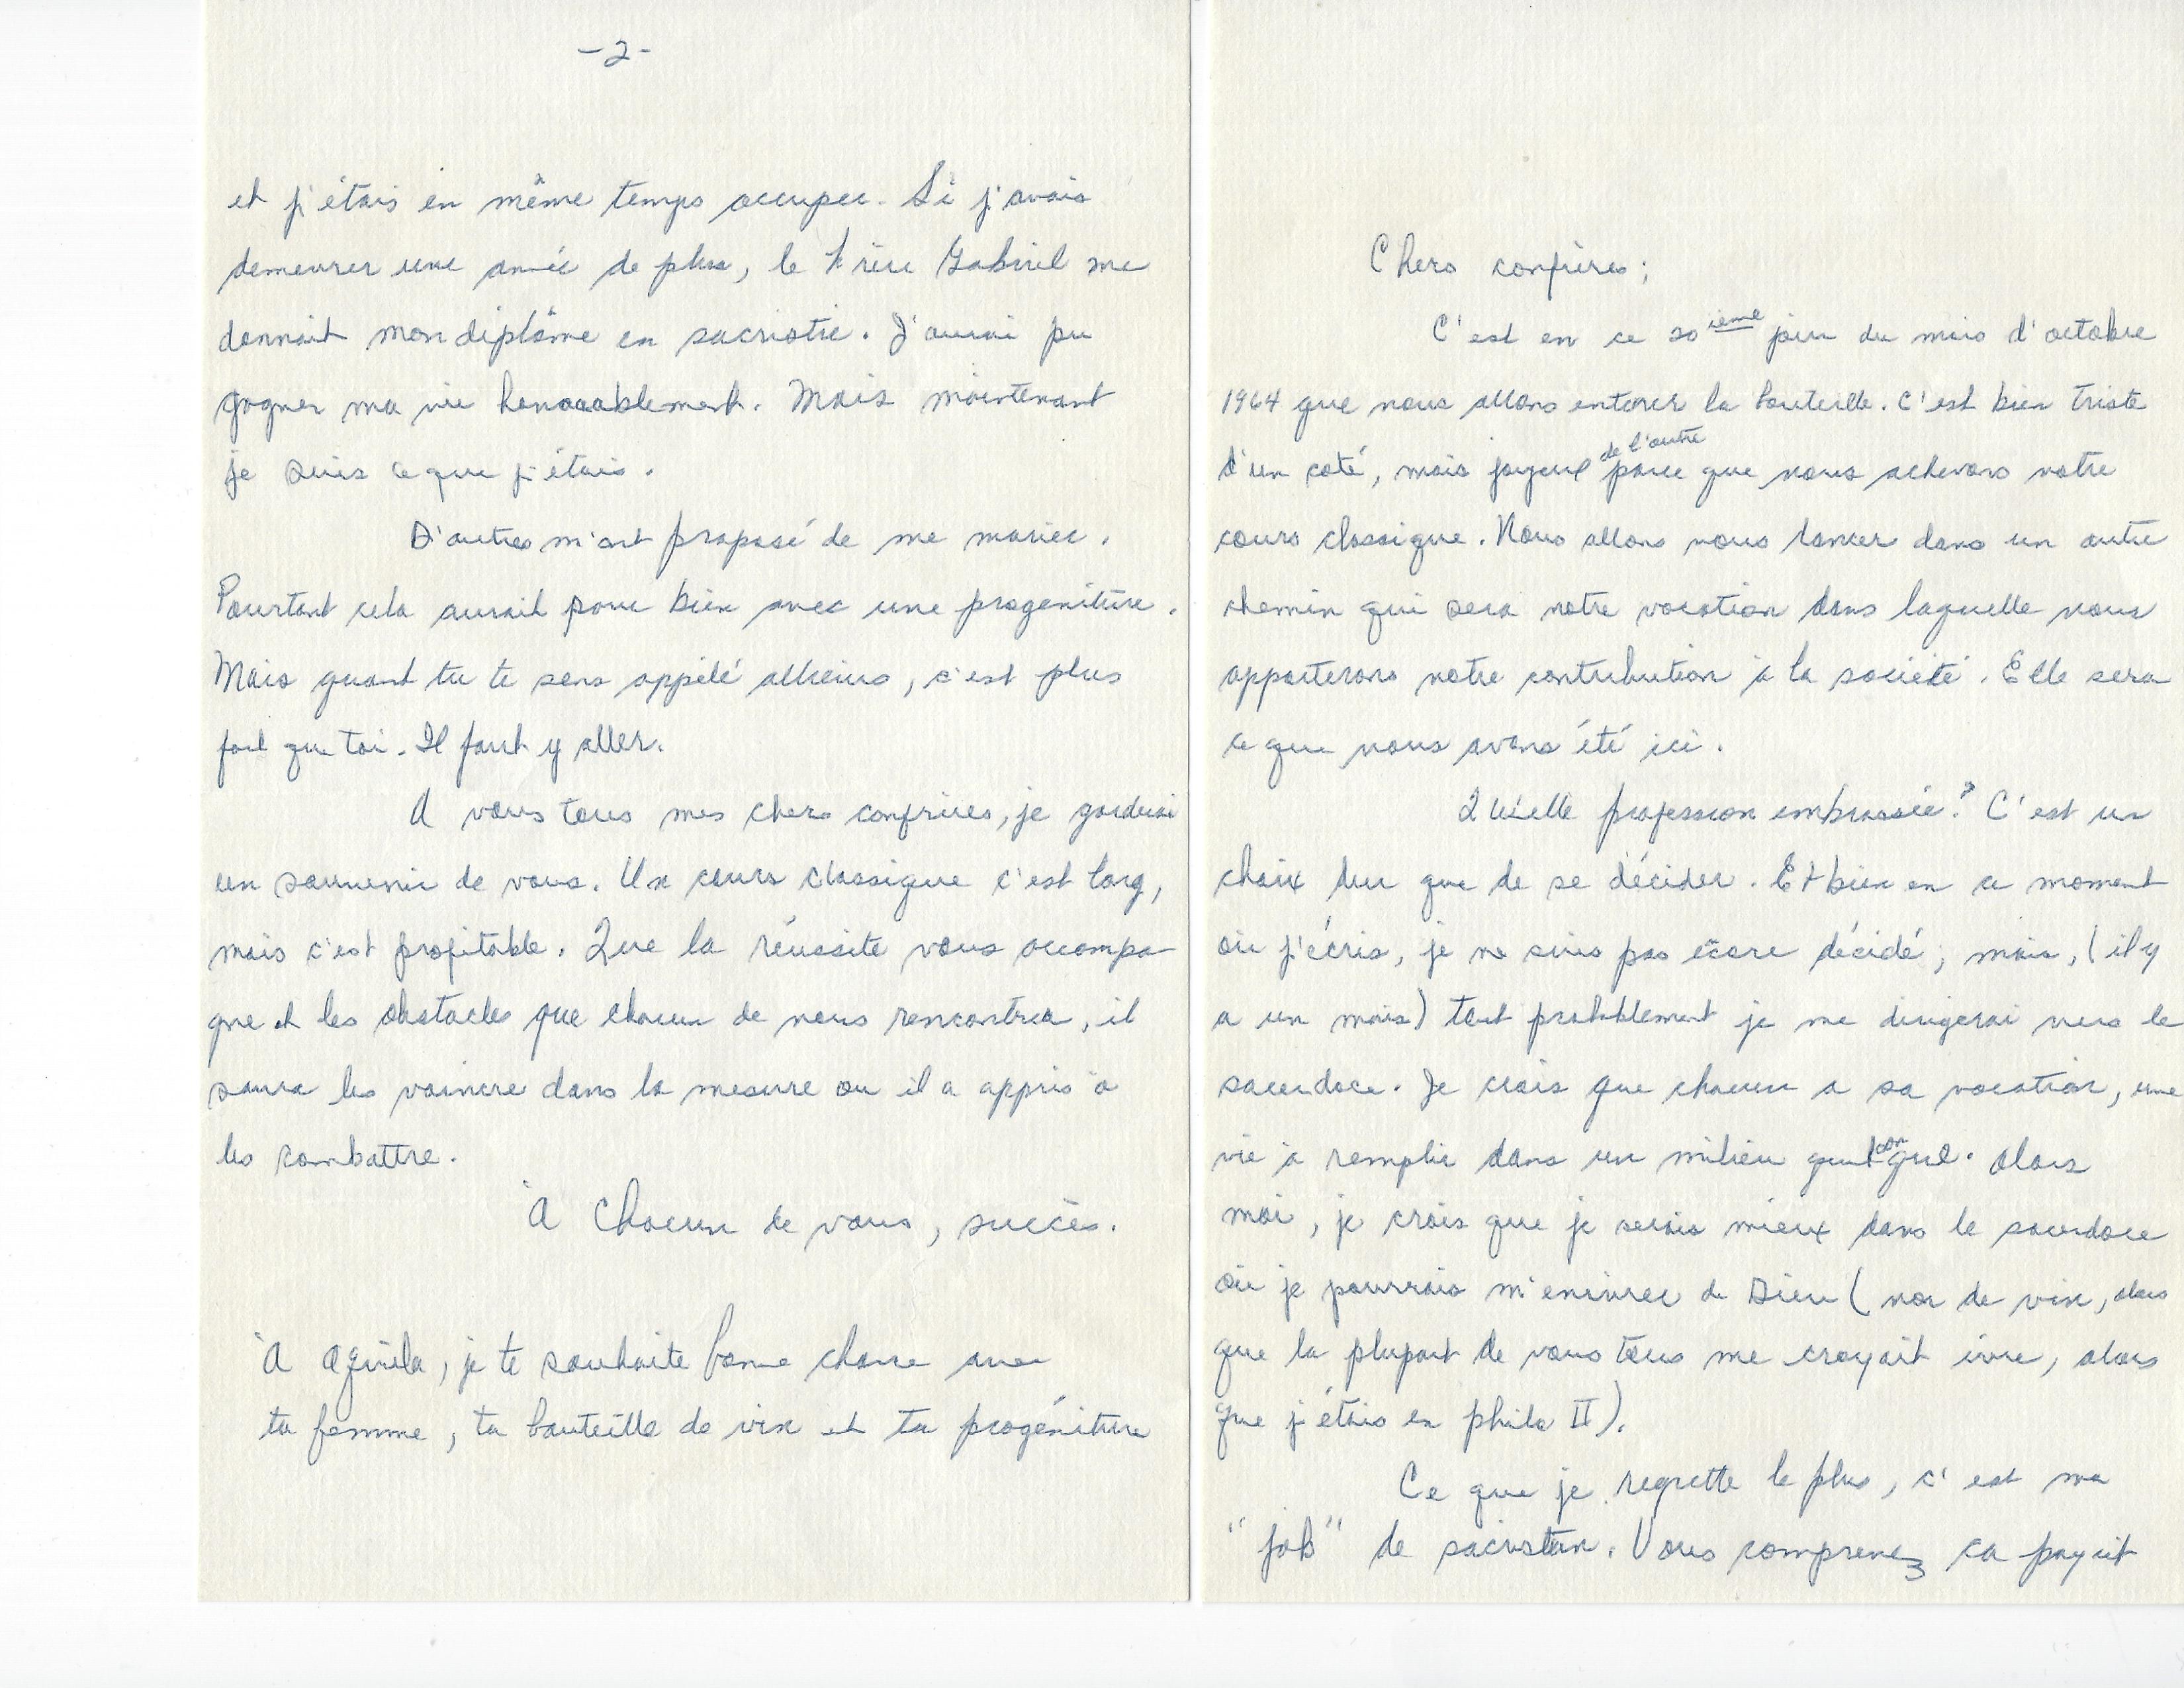 Chers confrères;
C'est en ce 20 ième jour du mois d'octobre
1964 que nous allons enterer la bouteille. C'est bien triste
d'un coté, mais joyeux de l'autre parce que nous achevons notre
cours classique. Nous allons nous lancer dans un autre
chemin qui sera notre vocation dans laquelle nous
apporterons notre contribution à la société. Elle sera
ce que nous avons été ici.
Quelle profession embrassée? C'est un
choix dur que de se décider. Et bien en ce moment
où j'écris, je ne suis pas encore décidé; mais, (il y
a un mois) tout probablement je me dirigerai vers le
sacerdoce. Je crois que chacun a sa vocation, une
vie à remplir dans un milieu quelconque. Alors
moi, je crois que je serais mieux dans le sacerdoce
où je pourrais m'enivrer de Dieu (non de vin, alors
que la plupart de vous tous me croyait ivre, alors
que j'étais en philo II).
Ce que je regrette le plus, c'est ma
"job" de sacristain. Vous comprenez ca payait
-2-
et j'étais en même temps occuper. Si j'avais
demeurer une année de plus, le Frère Gabriel me
donnait mon diplôme en sacristie. J'aurai pu
gagner ma vie honorablement. Mais maintenant
je suis ce que j'étais.
D'autres m'ont proposé de me marier.
Pourtant cela aurait bien avec une progeniture.
Mais quant tu te sens appelé ailleurs, c'est plus
fort que toi. Il faut y aller.
A vous tous mes chers confrères, je garderai
un souvenir de vous. Un cours classique c'est long,
mais c'est profitable. Que la réussite vous accompa-
gne et les obstacles que chacun de nous rencontrera, il
saura les vaincre dans la mesure ou il a appris à
les combattre.
À chacun de vous, succès.
À Aquila, je te souhaite bonne chance avec
ta femme, ta bouteille de vin et ta progéniture